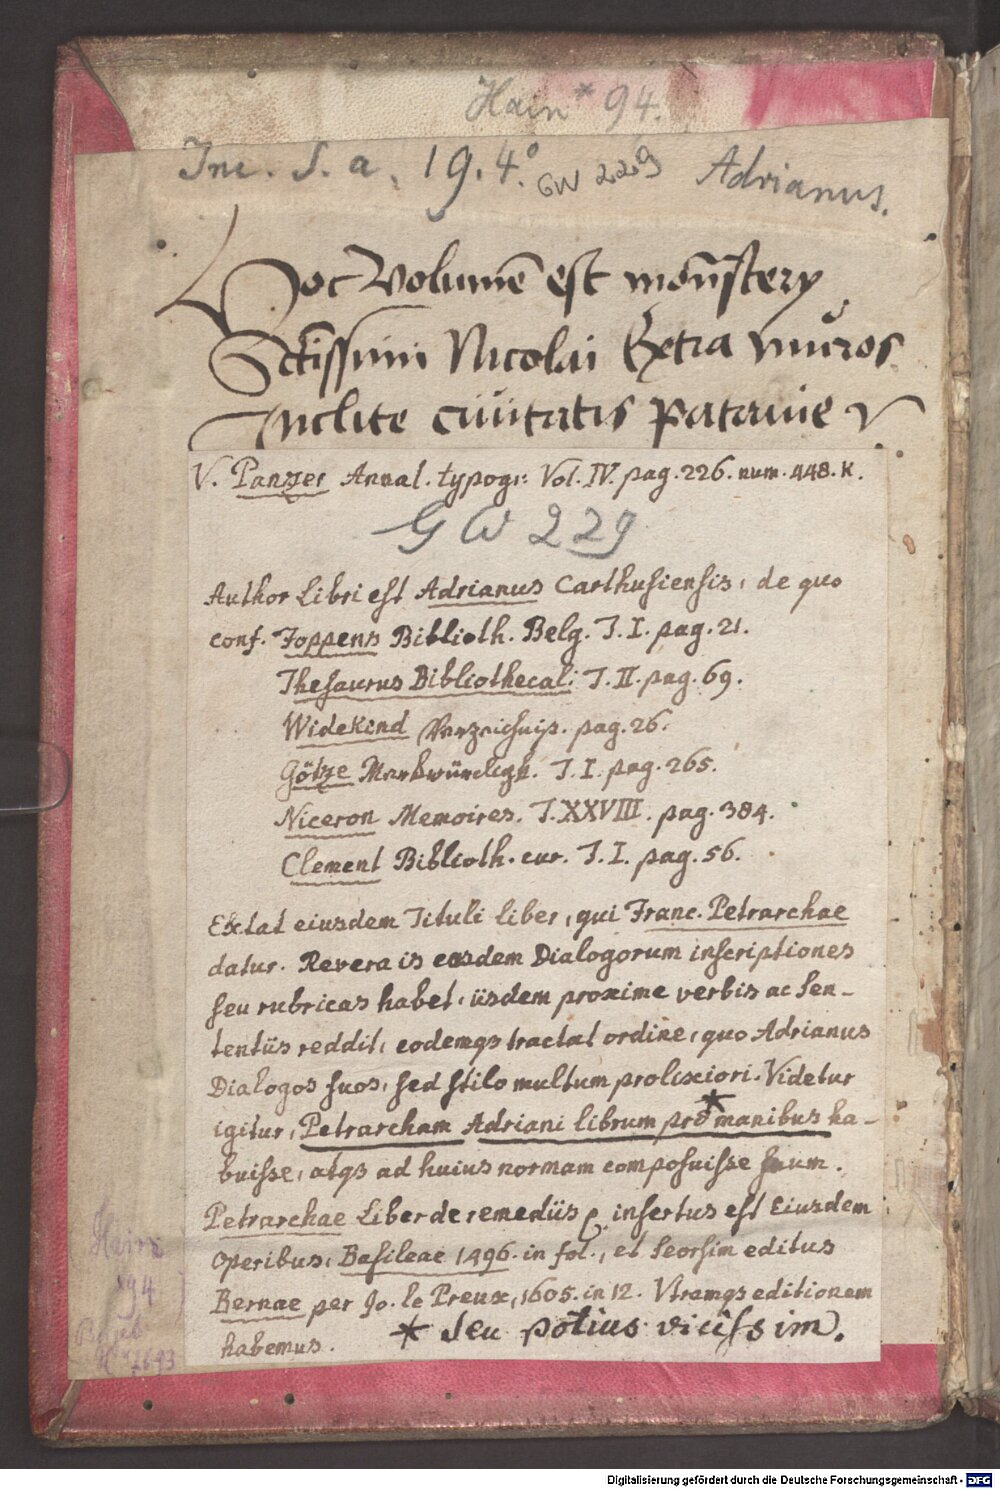 Hain * 94.
Inc. S. a. 19. 4.° GW 229 Adrianus.
Hoc Volumē est mon̄stery
Sctissimi Nicolai Extra muros
Inclite ciuitatis patauie
V. Panzer Annal. typogr: Vol. IV. pag. 226. num. 448. K.
GW 229
Author Libri est Adrianus Carthusiensis, de quo
conf. Foppens Biblioth. Belg. T. I. pag. 21.
Thesaurus Bibliothecal: T. II. pag. 69.
Widekind Verzeichniß. pag. 26.
Götze Merkwürdigk. T. I. pag. 265.
Niceron Memoires. T. XXVIII. pag. 384.
Clement Biblioth. cur. T. I. pag. 56.
Extat eiusdem Tituli liber, qui Franc. Petrarchae
datur. Revera is easdem Dialogorum inscriptiones
seu rubricas habet, iisdem proxime verbis ac sen-
tentiis reddit, eodemqs tractat ordine, quo Adrianus
Dialogos suos, sed stilo multum prolixiori. Videtur
igitur, Petrarcham Adriani librum prę * manibus ha-
buisse, atqs ad huius normam composuisse suum.
Petrarchae Liber de remediis p. insertus est Eiusdem
operibus, Basileae 1496. in fol., et seorsim editus
Bernae per Jo. le Preux, 1605. in 12. Vtramqs editionem
habemus. * seu potius vicissim.
Hain
94
№ 1643
Digitalisierung gefördert durch die Deutsche Forschungsgemeinschaft - DFG